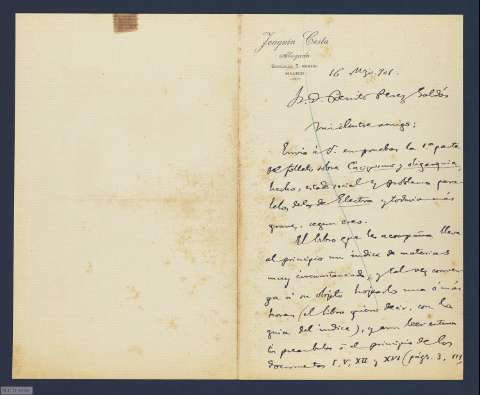 Joaquín Costa
Abogado
MADRID
16 Mzo. 901.
Sr. D. Benito Perez Galdós
Mi excelente amigo:
Envío á V. en pruebas la 1ª parte
del folleto sobre Caciquismo y oligarquía,
hecho, estado social y problema para-
lelos del de Electra y todavía más
graves, según creo.
El libro que le acompaña lleva
al principio un índice de materias
muy circunstanciado, y tal vez conven-
ga á su objeto hojearlo una ó más
horas (el libro quiero decir, con la
guía del índice), y aun leer entero
los preámbulos ó el principio de los
documentos I, V, XII y XVI (págs. 3,